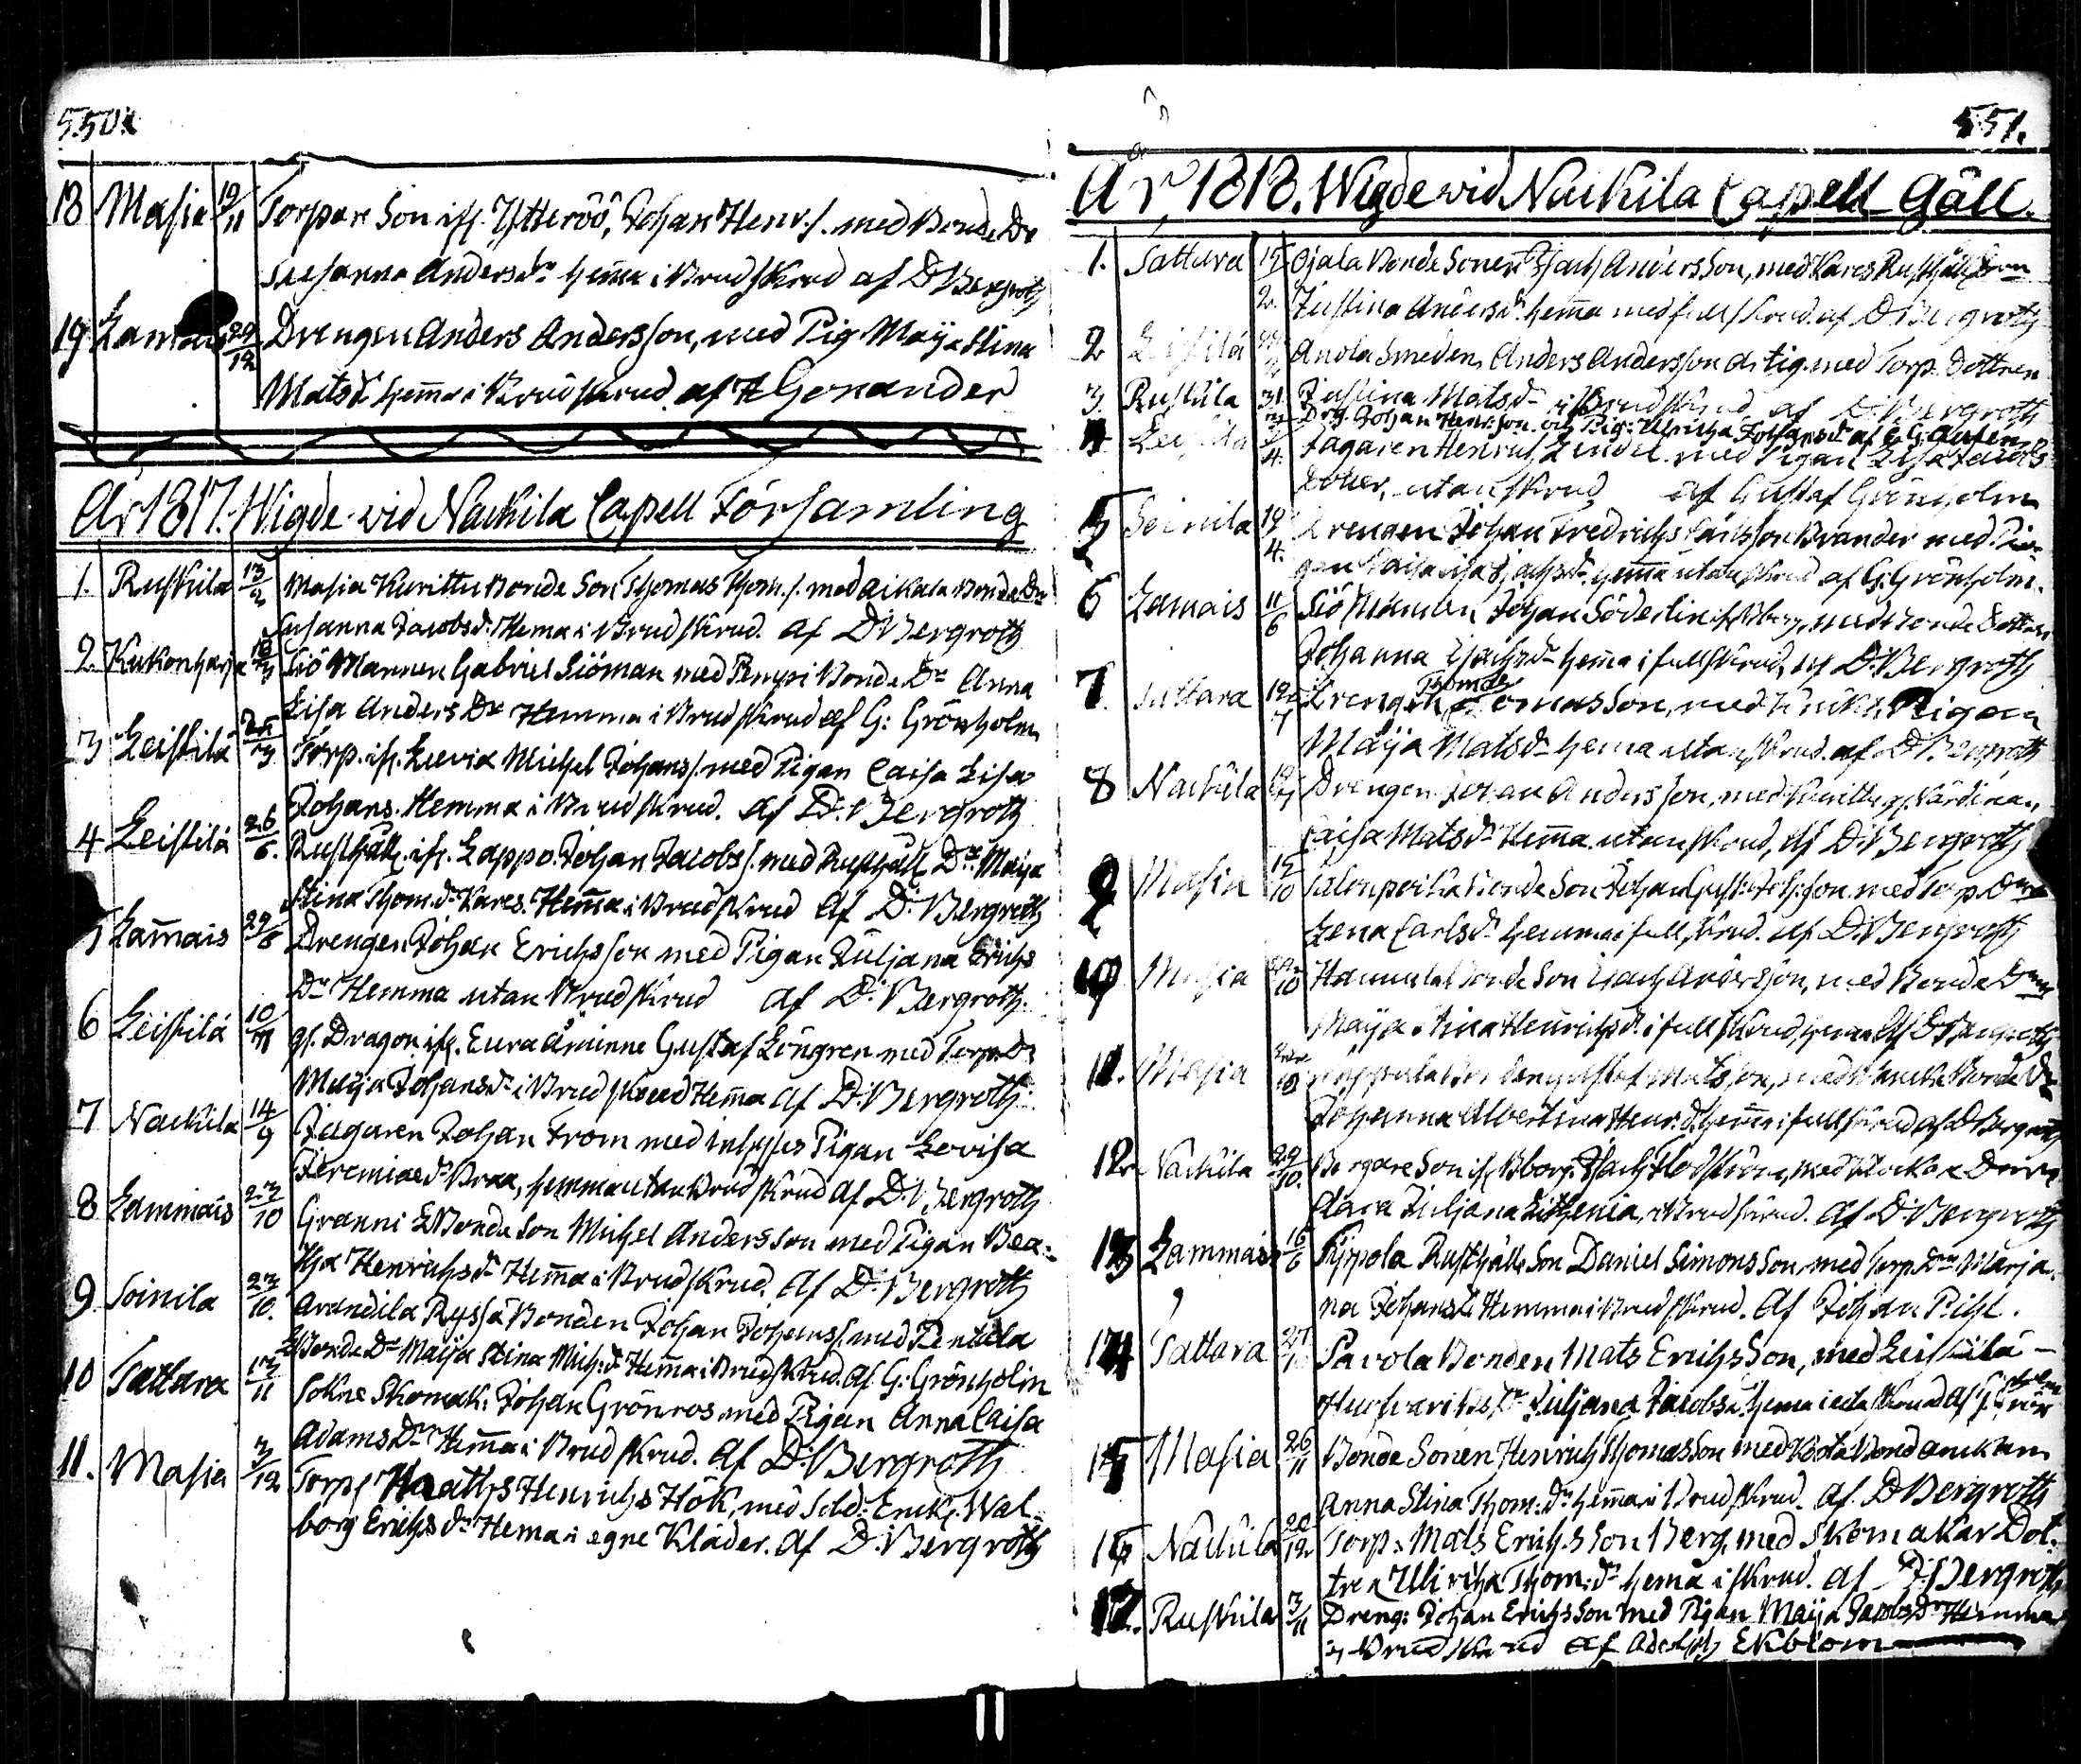 550.
18 Masia 19/11 Torpare Son ifr. Ytteröö, Johan Henr:s. med Bonde Dr
Susanna Andersdr hema i Brudskrud af D Bergroth
19 Lamais 29/12 Drengen Anders Andersson, med Pig. Maija Stina
Matsdr hema i Brudskrud af H Gonander
År 1817. Wigde vid Nackila Capell Församling
1. Ruskila 13/2 Masia Kurittu Bonde Son Thomas Thom:s. med Aikala Bonde Dr
Susanna Jacobsd: Hema i Brudskrud. af D: Bergroth
2. Kukonharja 18/3 Siö Mannen Gabriel Siöman med Pempi Bonde Dr Anna
Lisa Anders Dr Hemma i Brudskrud af G: Grönholm
3 Leistilä Torp. ifr. Luvia Michel Johans s. med Pigan Caisa Lisa
Johans. Hemma i Brudskrud. af D: Bergroth
4 Leistilä 26/6. Rusthåll. ifr. Lappo. Johan Jacobs s. med Rusthåll Dr Maija
Stina Thom.dr Kares. Hema i Brudskrud af D: Bergroth
5 Lamais 29/6 Drengen Johan Erichsson med Pigan Juljana Erichs
Dr Hemma utan Brudskrud af D: Bergroth.
6 Leistilä 10/11 gl. Dragon ifr. Eura Åminne Gustaf Löngren med Torp Dr
Maija Johansdr i Brudskrud Hema af D: Bergroth:
7 Nackila 14/9 Jägaren Johan From med Pigan Lovisa
Jeremiaedr Braa, hemma utan Brudskrud af D: Bergroth
8 Lammais 23/10 Granni Bonde Son Michel Andersson med Pigan Bea:
tha Henrichsdr Hema i Brudskrud. af D: Bergroth
9 Soinila 23/10. Arandila Ryssä Bonden Johan Johans s. med Pentala
Bonde Dr Maija Stina Mich:dr Hema i Brudskrud. af G: Grönholm
10 Tattara 13/11 Sokne Skomak: Johan Grönros med Pigan Anna Caisa
Adams Dr Hema i Brudskrud. af D: Bergroth
11. Masia 3/12 Torp. Henrichs Hök, med Sold: Enk. Wal-
borg Erichsdr Hema i egne Kläder. af D: Bergroth
551.
År, 1818. Wigde vid Nackila Capell Gäll.
1. Tattara Ojala Bonde Sonen Isach Andersson, med Kares Rusthåll
Justina Andersdr hema med full skrud. af D Bergroth
2 Leistilä Anola Smeden Anders Andersson med Torp. Dottren
3. Ruskila 31. Justina Matsdr i Brudskrud af D. Bergroth
Drg. Johan Henr:son och Pig: Ulricha Johansdr af
4 Leistila Jägaren Henrich Lindel med Pigan Lisa Jacobs
Dotter, utan skrud af Gustaf Grönholm
5 Soinila 19/4. Drengen Johan Fredrichs Carlsson Brander med Pi-
gan Caisa Lisa Isachsdr hema utan skrud af G: Grönholm.
6 Lamais 11/6 Siö Mannen Johan Söderlin ifr. Bborg, med Bonde Dotter
Johanna Isachsdr hema i full skrud, af D. Bergroth
7 Tattara Drengen Thomas Thomasson, med Pigan
Maija Matsdr hema utan skrud. af D. Bergroth
8 Nackila Drengen Johan Andersson, med
Caisa Matsdr Hema utan skrud, af D: Bergroth
9 Masia Bonde Son Johan Gust: Joh:son med Torp. Dr
Lena Carlsdr hemma i full skrud. af D: Bergroth
10 Masia Bonde Son Isach Andersson, med Bonde D
Maija Stina Henrichsdr i full skrud, hema af D Bergroth
11. Masia Gustaf Matsson, med Bonde Dr
Johanna Albertina Henr:d. hema i full skrud af D Bergroth
12. Nackila 29/10. Borgare Son ifr Bborg. Isach Flodström, med Klockare
Clara Juljana Lithenia, i Brudskrud. af D: Bergroth
13 Lammais Sippola Rusthålls Son Daniel Simonsson med Torp. Dr Marja-
na Johansdr Hemma i Brudskrud. af Johan Pihl.
14 Tattara Pavola Bonden Mats Erichsson, med Leistilä –
Juljana Jacobsdr hema i skrud af G: Grön
holm
15 Masia 26/11 Bonde Sonen Henrich Thomasson med
Anna Stina Thom:dr hema i Brudskrud. af D Bergroth
16 Nackila 20/12 Torp: Mats Erichsson Berg, med Skomakar Dot-
tren Ulricha Thom:dr hema i skrud. af D: Bergroth
17. Ruskila 3/11 Dreng: Johan Erichsson med Pigan Maija Jacobsdr Hemma
i Brudskrud af Adolph Ekblom